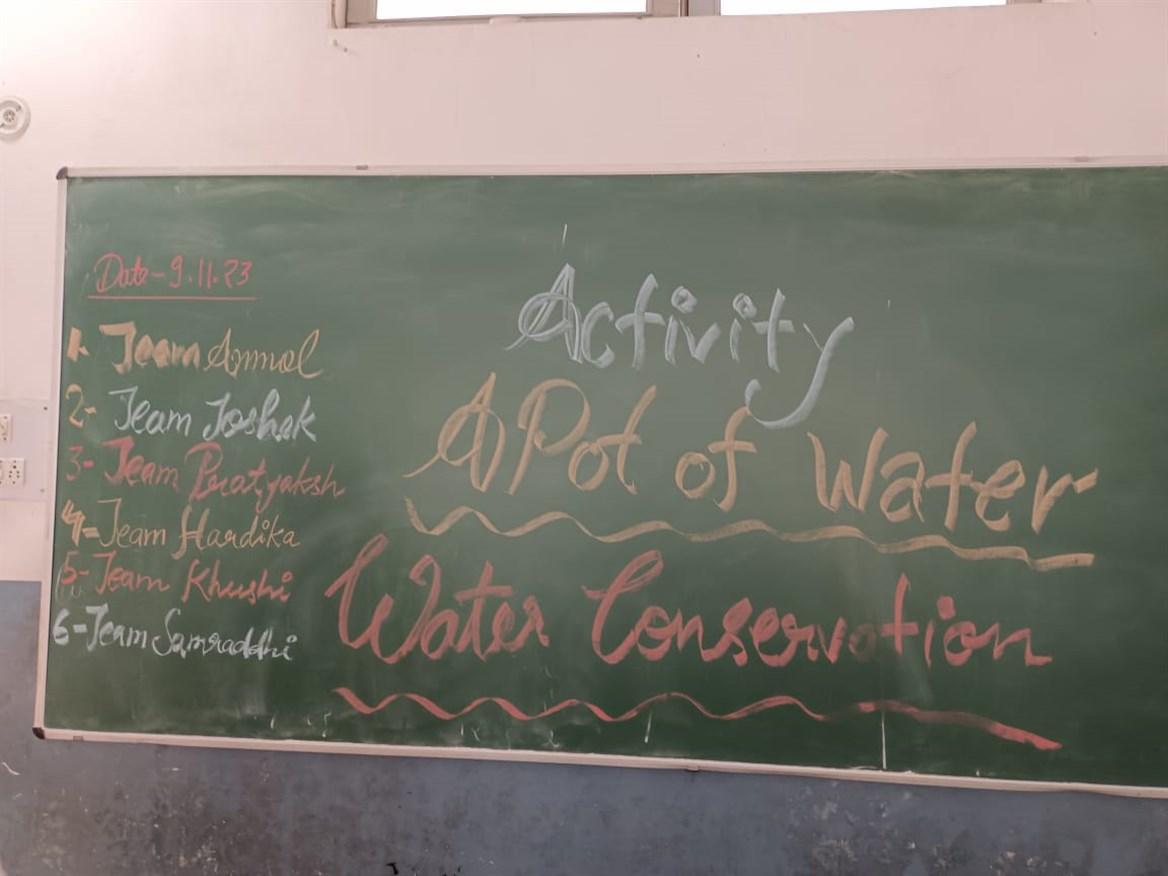 Date-9.11.23
1- Team Anmol
2- Team Joshak
3- Team Pratyaksh
4-Team Hardika
5-Team Khushi
6-Team Samraddhi
Activity
A Pot of Water
Water Conservation